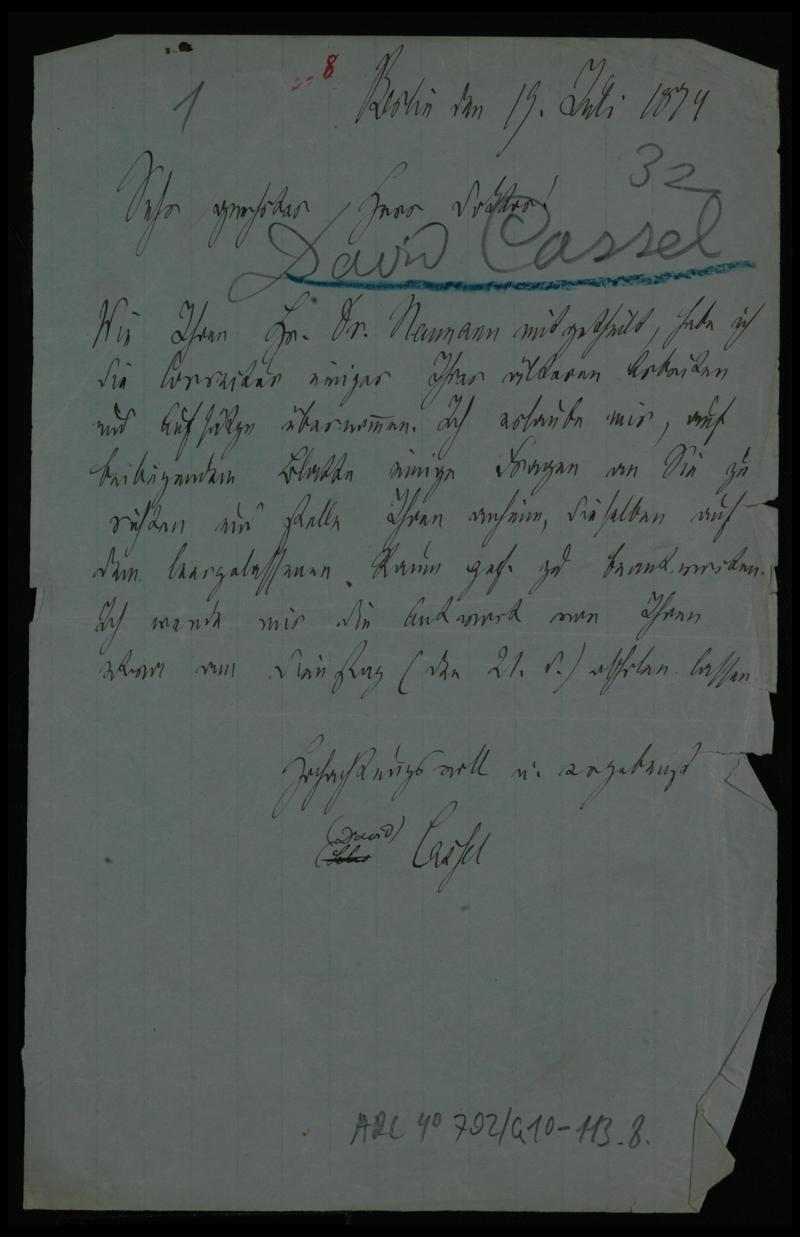 8
1
Berlin den 19. Juli 1874
32
Sehr geehrter Herr Doktor!
David Cassel
Wie Ihnen Hr. Dr. Neumann mitgetheilt, habe ich
die Correctur einiger Ihrer älteren Arbeiten
und Aufsätze übernom̅en. Ich erlaube mir, auf
beiliegendem Blatte einige Fragen an Sie zu
richten und stelle Ihnen anheim, dieselben auf
dem leergelassenen Raum gef. zu beantworten.
Ich werde mir die Antwort von Ihnen
etwa am Dienstag (den 21. d.) abholen lassen.
Hochachtungsvoll u. ergebenst
(David)
Cassel
ARC 4° 792/G10-113.8.